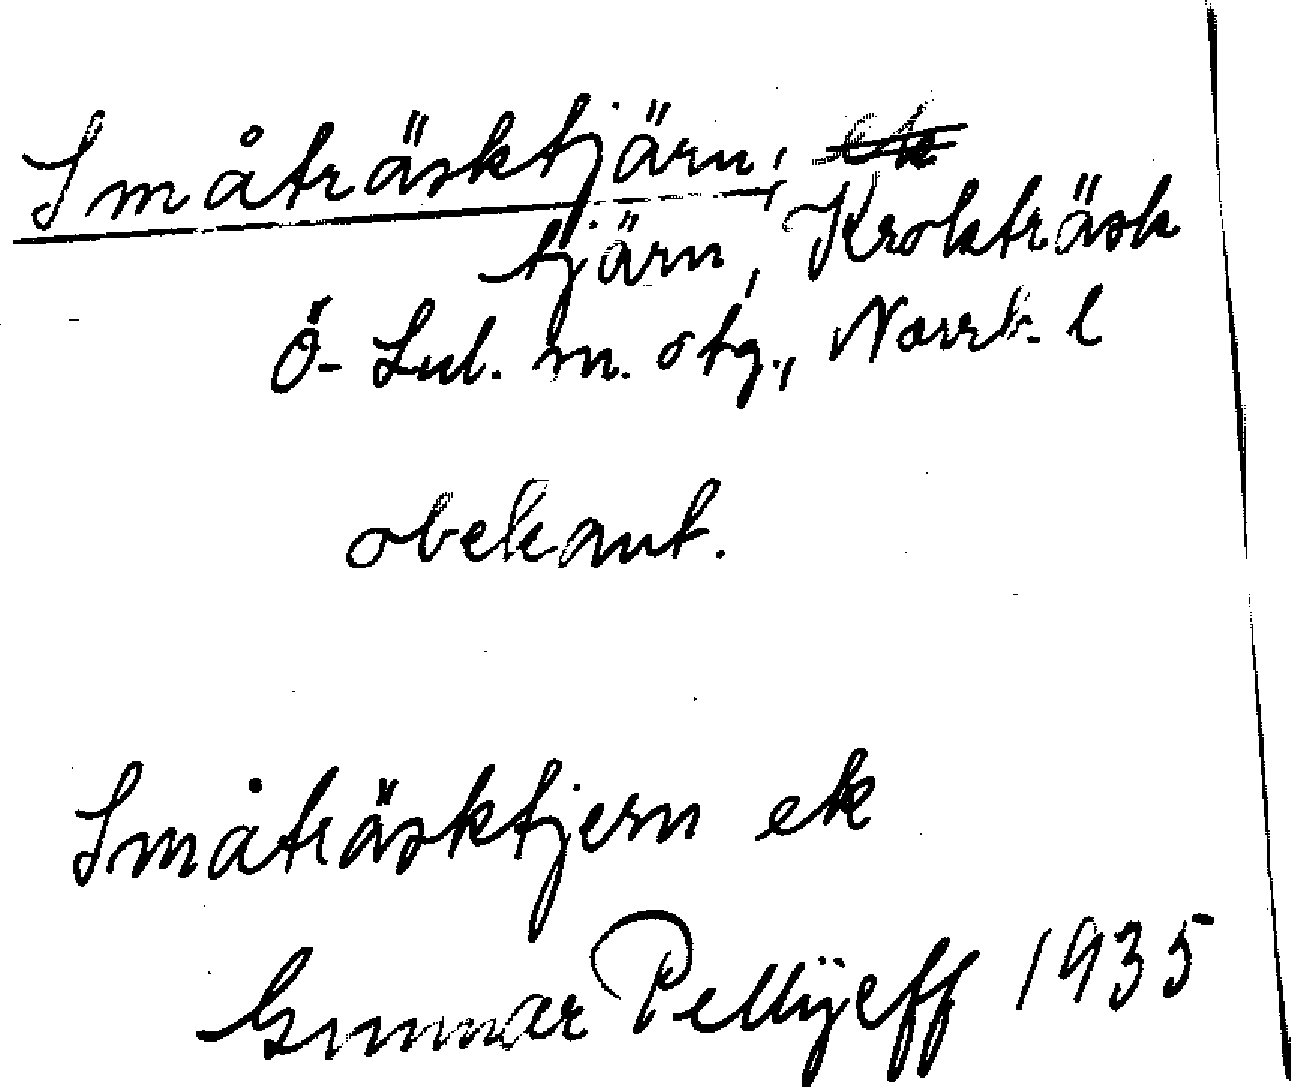 Småträsktjärn;
tjärn, Krokträsk
Ö-Lul. m. otg., Norrb. l
obekant.
Småträsktjern ek
Gunnar Pellijeff 1935